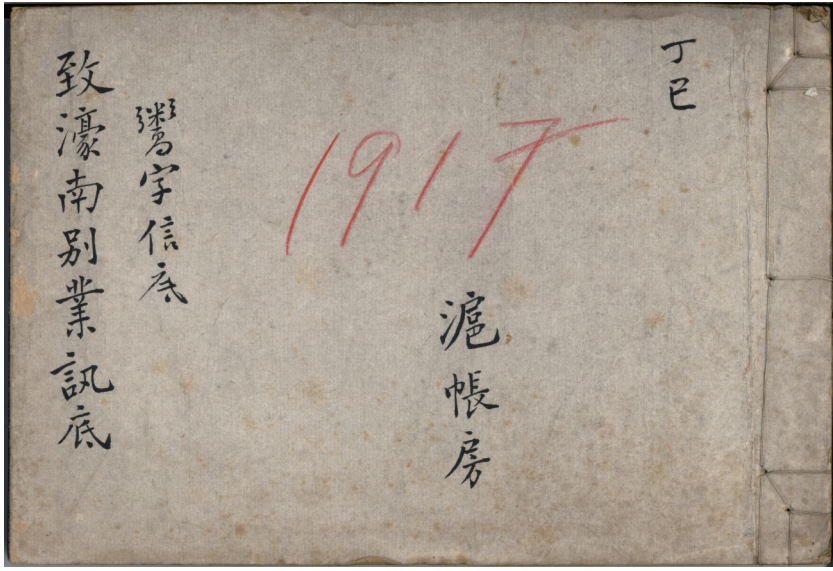 丁巳
1917
滬帳房
鸞字信底
致濠南别業訊底